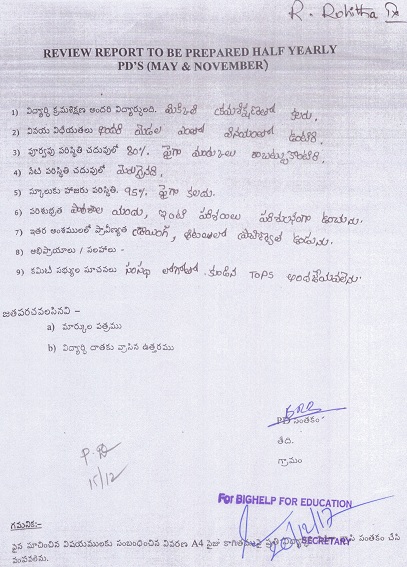 R. Rohitha IX
REVIEW REPORT TO BE PREPARED HALF YEARLY
PD'S (MAY & NOVEMBER)
1) విద్యార్థి క్రమశిక్షణ అందరి విద్యార్థులది. మిక్కిలి క్రమశిక్షణలో కలదు.
2) వినయ విధేయతలు అందరి ఎంతో వినయంతో ఉంటారు.
3) పూర్వపు పరిస్థితి చదువులో 80% పైగా మార్కులు
4) నేటి పరిస్థితి చదువులో
5) స్కూలుకు హాజరు పరిస్థితి. 95% పైగా కలదు.
6) పరిశుభ్రత పాఠశాల యందు, ఇంటి పరిశుభ్రంగా ఉంచును.
7) ఇతర అంశములలో ప్రావీణ్యత డ్రాయింగ్, ఆటలలో
8) అభిప్రాయాలు / సలహాలు -
9) కమిటి సభ్యుల సూచనలు సంస్థ లోగోతో కూడిన TOPS అందజేయవలెను.
జతపరచవలసినవి -
a) మార్కుల పత్రము
b) విద్యార్థి దాతకు వ్రాసిన ఉత్తరము
PD సంతకం
తేది.
గ్రామం
P.D
15/12
For BIGHELP FOR EDUCATION
20/12/17
SECRETARY
గమనిక:-
పైన సూచించిన విషయములకు సంబంధించిన వివరణ A4 సైజు కాగితముపై ప్రతి సంతకం చేసి
పంపవలెను.